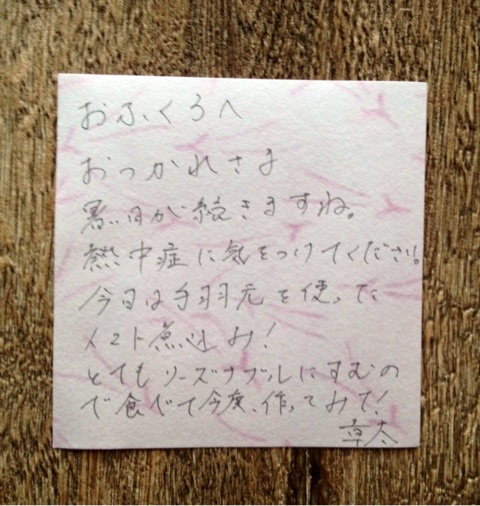 おふくろへ
おつかれさま
暑い日が続きますね。
熱中症に気をつけてください。
今日は手羽元を使った
トマト煮込み!
とてもリーズナブルにすむの
で食べて今度、作ってみて!
草太